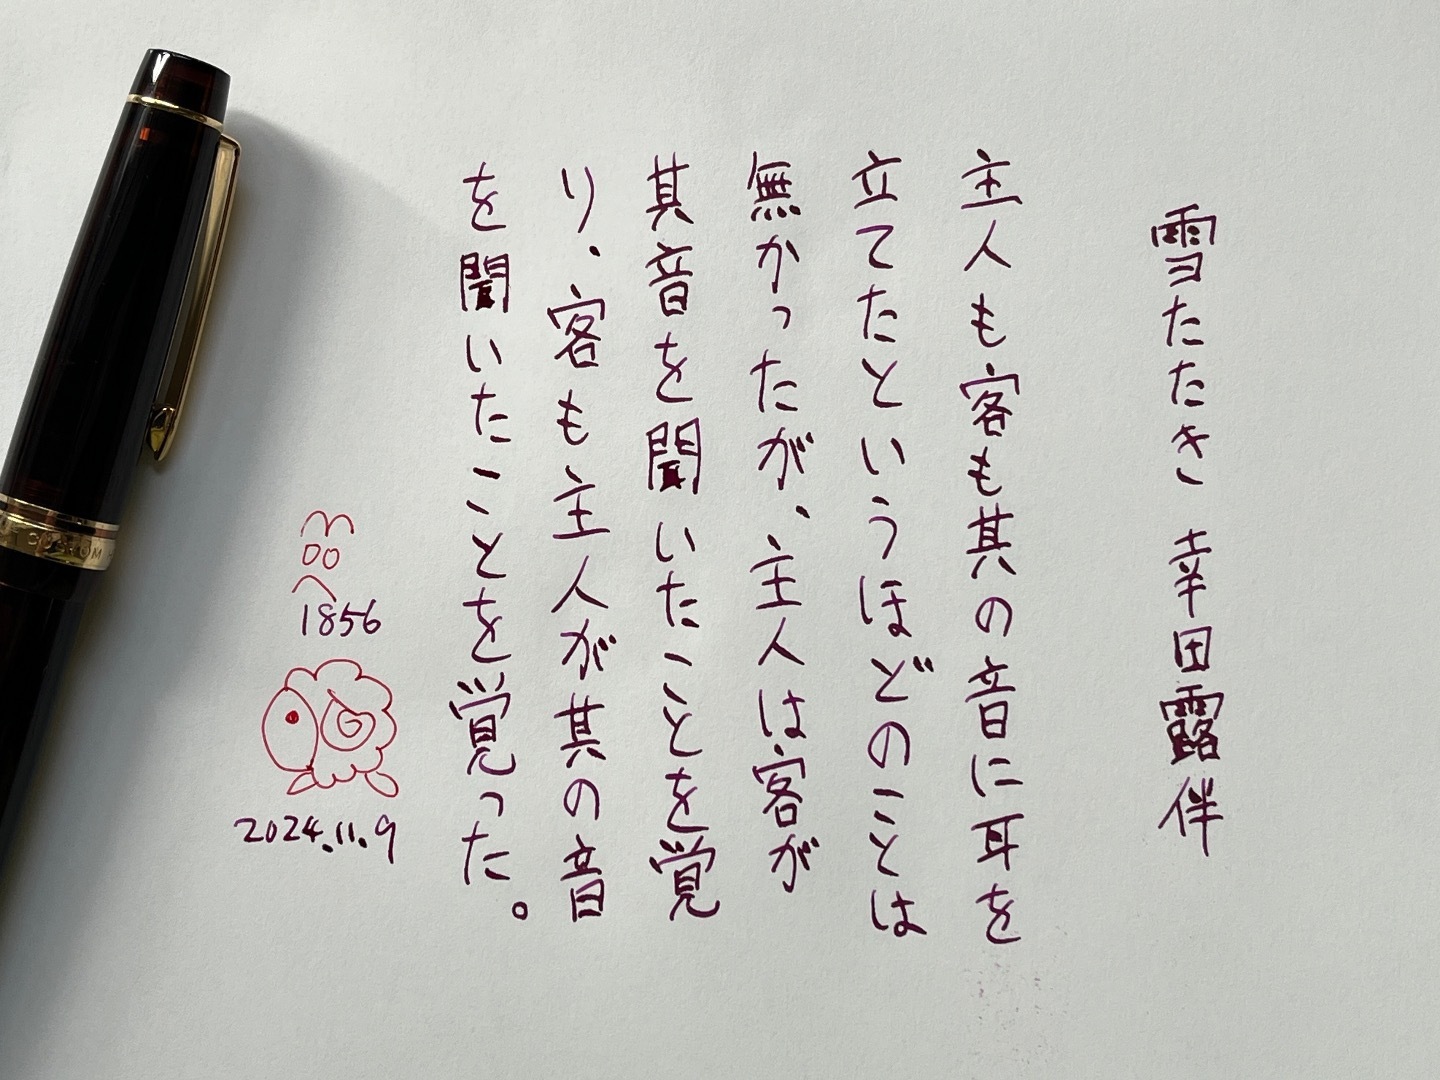 雪たたき 幸田露伴
主人も客も其の音に耳を
立てたというほどのことは
無かったが、主人は客が
其音を聞いたことを覚
り、客も主人が其の音
を聞いたことを覚った。
1856
2024.11.9